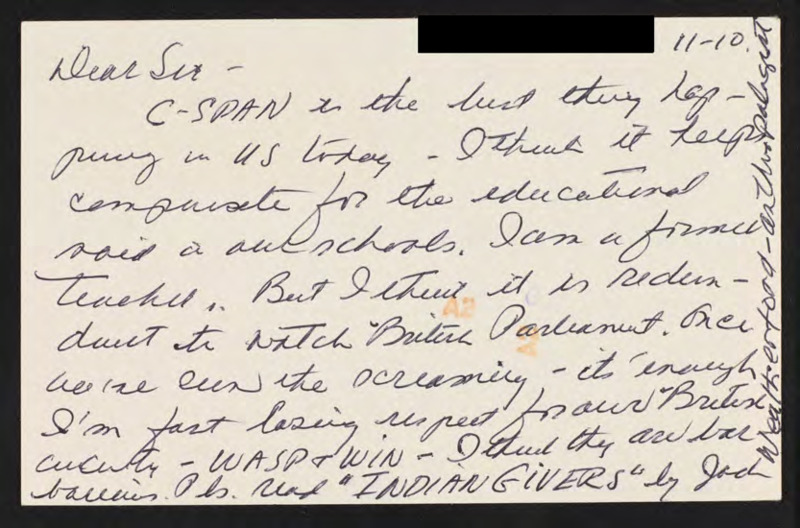 11-10.
Dear Sir -
C-SPAN is the best thing hap-
pening in US today - I think it helps
compensate for the educational
void in our schools. I am a former
teacher. But I think it is redun-
dant to watch British Parliament. Once
we've seen the screaming - its enough
I'm fast losing respect for our "British
- WASP & WIN - I think they are bar
barians. Pls. read "INDIAN GIVERS" by Jack
Weatherford - anthropologist
A2
A2